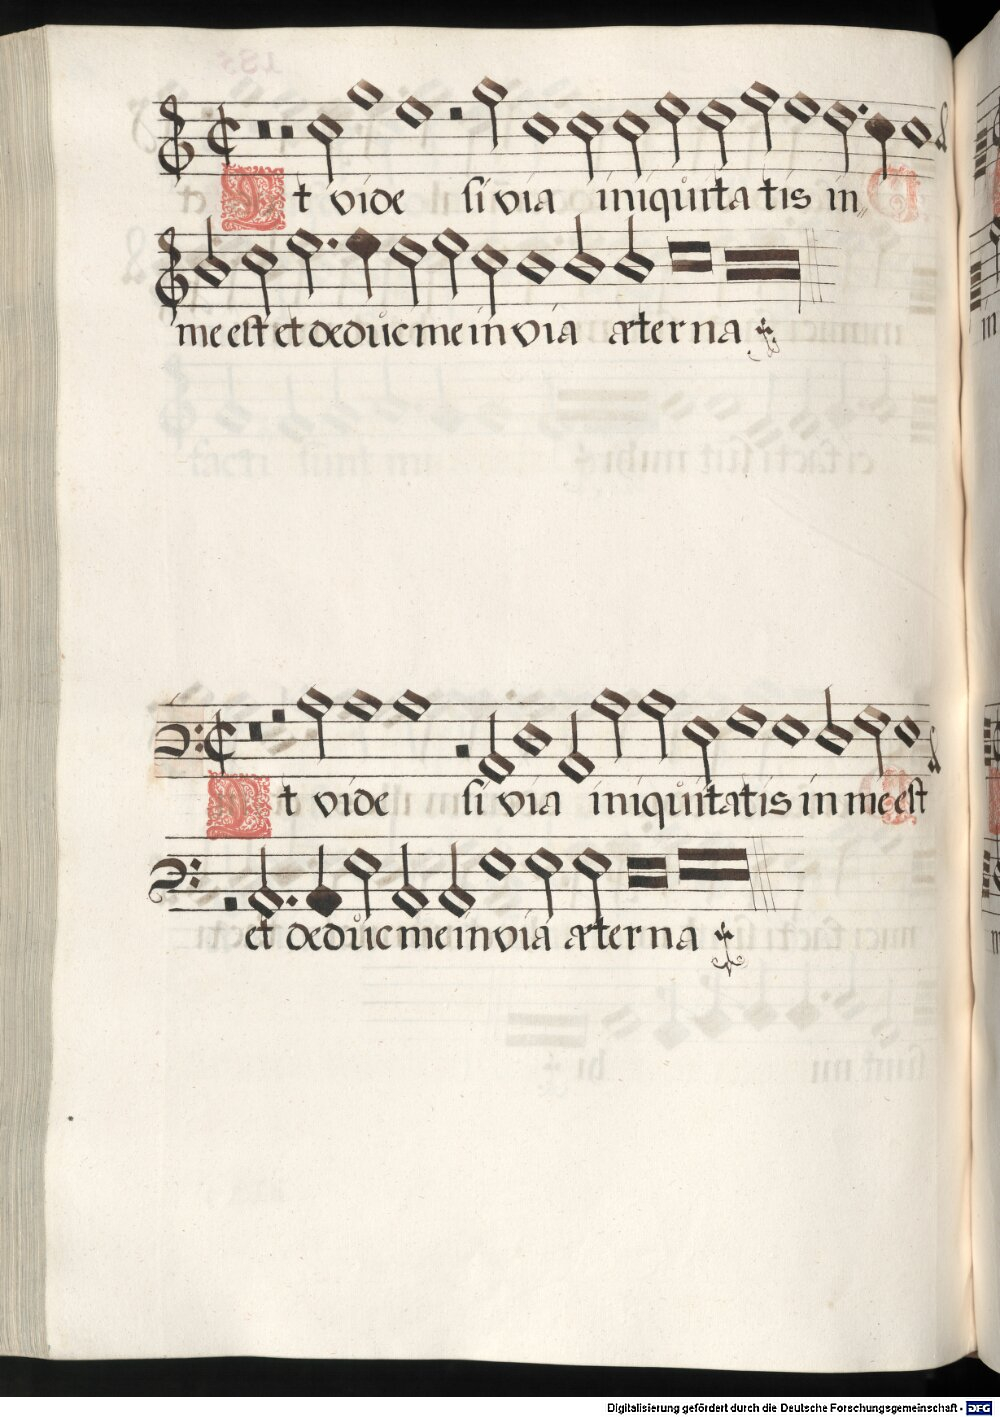 Et vide si via iniquitatis in
me est et deduc me in via æterna
Et vide si via iniquitatis in me est
et deduc me in via æterna
Digitalisierung gefördert durch die Deutsche Forschungsgemeinschaft - DFG